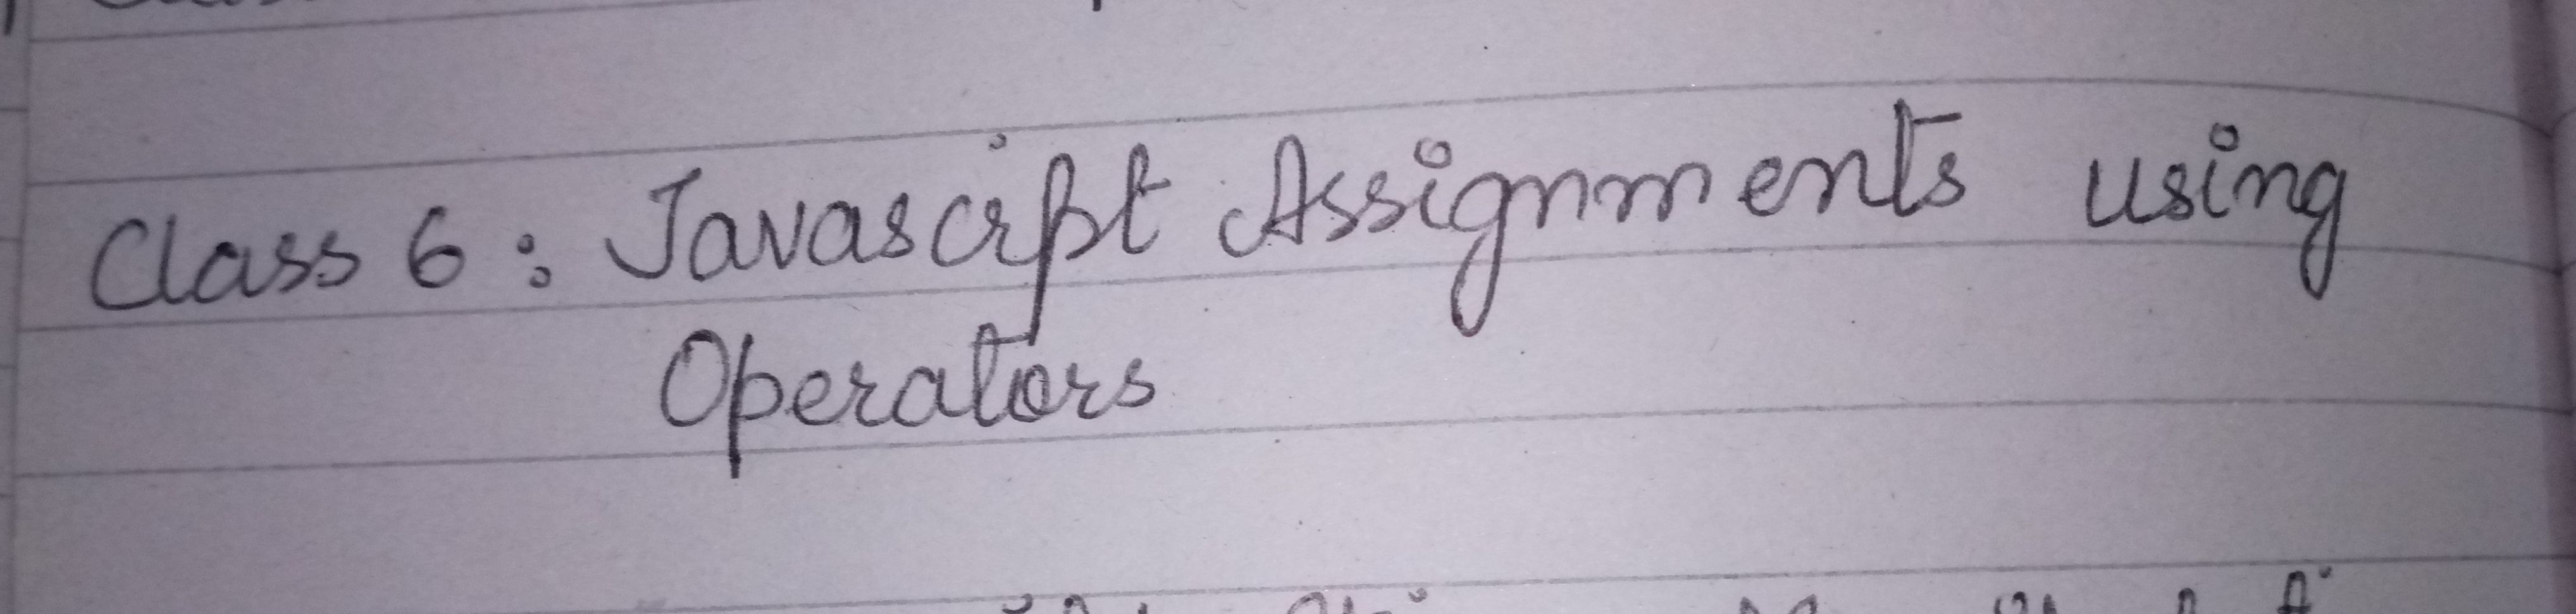 Class 6 : Javascript Assignments using
Operators